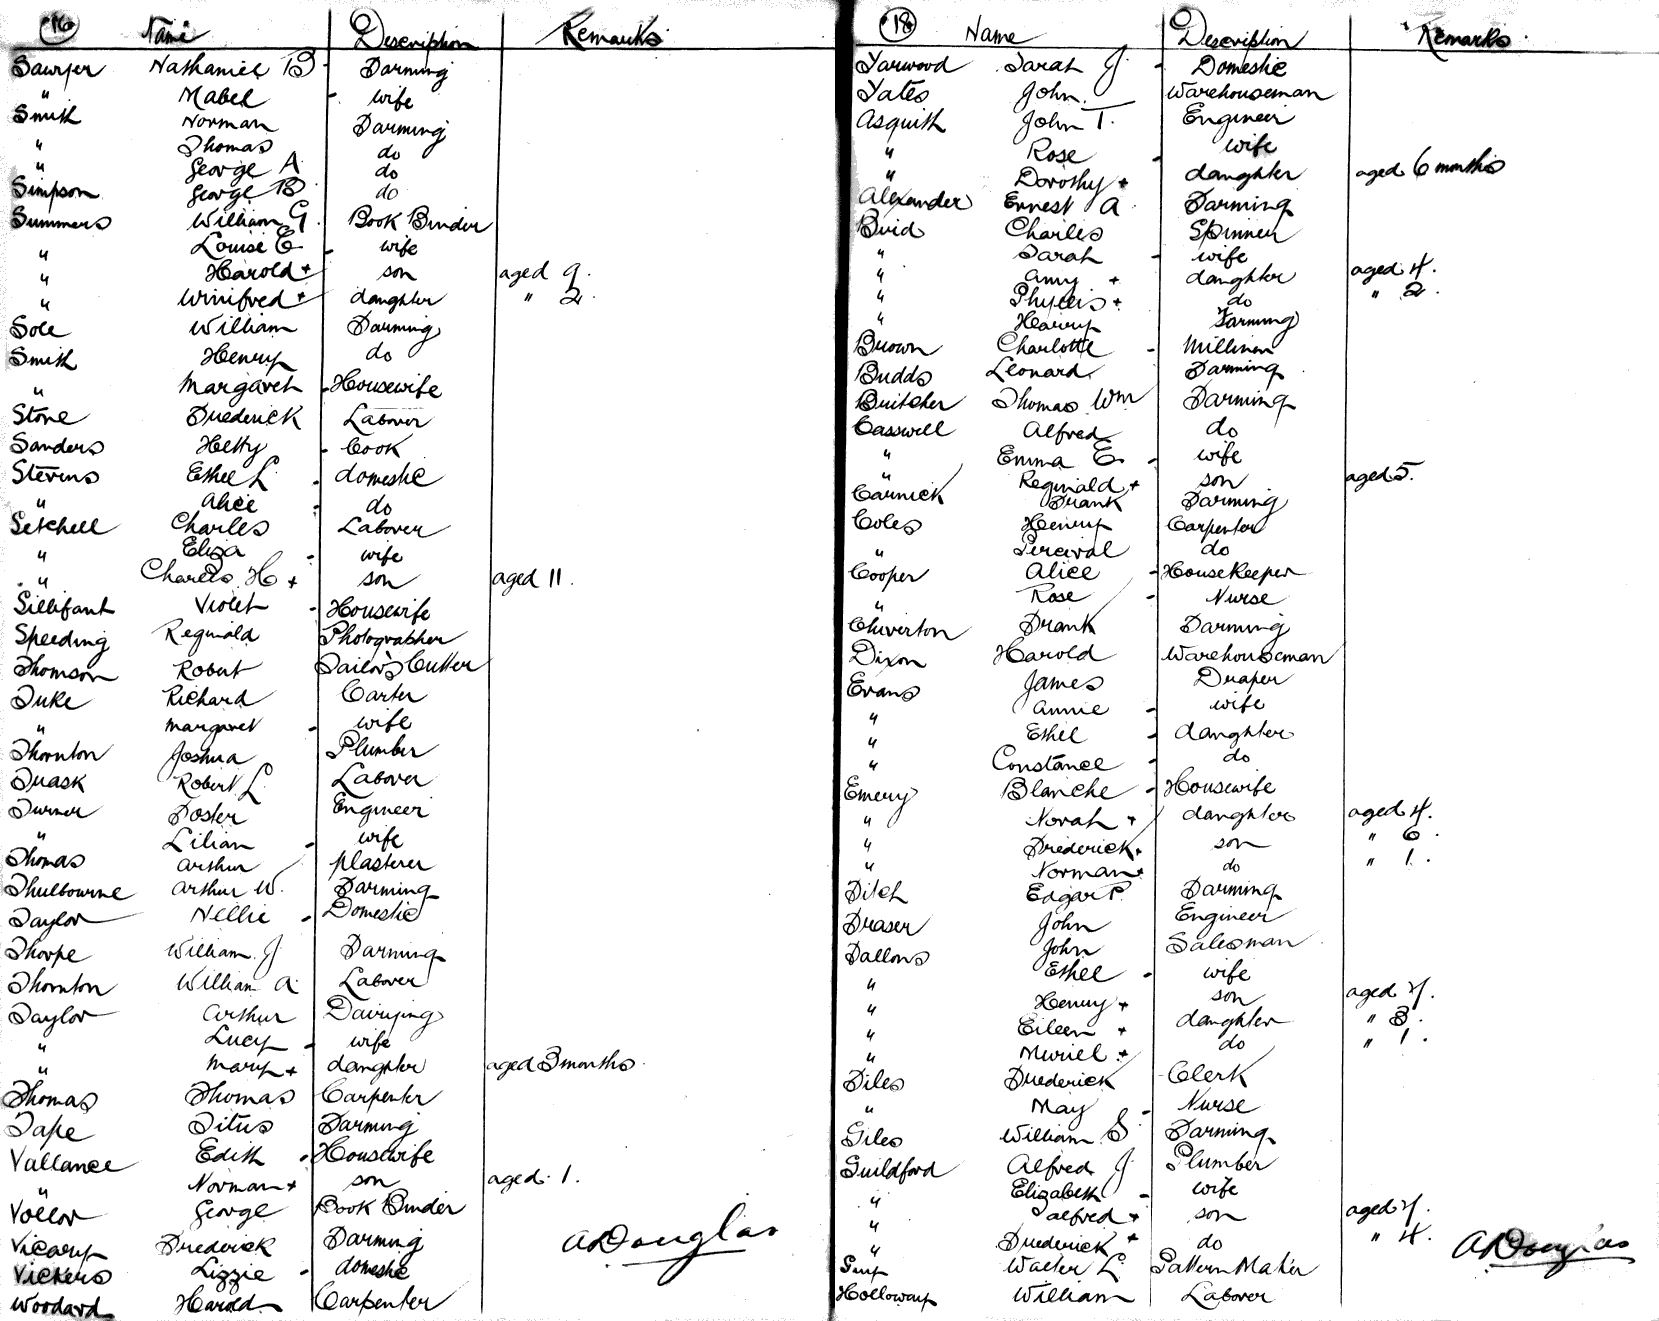 16 Name Description Remarks
Sawyer Nathaniel B Farming
" Mabel - wife
Smith Norman Farming
" Thomas do
" George A do
Simpson George B do
Summers William G. Book Binder
" Louise E - wife
" Harold + son aged 9.
" Winifred + daughter " 2.
Sole William Farming
Smith Henry do
" Margaret - Housewife
Stone Frederick Labourer
Sanders Hetty - Cook
Stevens Ethel L - domestic
" Alice - do
Setchell Charles Labourer
" Eliza - wife
" Charles H + son aged 11.
Sillifant Violet - Housewife
Speeding Reginald Photographer
Thomson Robert Tailor's Cutter
Tuke Richard Carter
" Margaret - wife
Thornton Joshua Plumber
Trask Robert L Labourer
Turner Foster Engineer
" Lilian - wife
Thomas Arthur Plasterer
Thulbourne Arthur W. Farming
Taylor Nellie - Domestic
Thorpe William J Farming
Thornton William A Labourer
Taylor Arthur Dairying
" Lucy - wife
" Mary + daughter aged 3 months.
Thomas Thomas Carpenter
Tape Titus Farming
Vallance Edith - Housewife
" Norman + son aged 1.
Vollor George Book Binder
Vicary Frederick Farming
Vickers Lizzie - domestic
Woodard Harold Carpenter
ADouglas
18 Name Description Remarks
Yarwood Sarah J - Domestic
Yates John. Warehouseman
Asquith John T. Engineer
" Rose - wife
" Dorothy + daughter aged 6 months
Alexander Ernest A Farming
Brid Charles Spinner
" Sarah - wife
" Amy + daughter aged 4.
" Phyllis + do " 2.
" Harry Farming
Brown Charlotte - Milliner
Budds Leonard Farming
Butcher Thomas Wm Farming
Casswell Alfred do
" Emma E - wife
" Reginald + son aged 5.
Carnick Frank Farming
Coles Henry Carpenter
" Percival do
Cooper Alice - HouseKeeper
" Rose - Nurse
Chiverton Frank Farming
Dixon Harold Warehouseman
Evans James Draper
" Annie - wife
" Ethel - daughter
" Constance - do
Emery Blanche - Housewife
" Norah + daughter aged 4.
" Frederick + son " 6.
" Norman + do " 1.
Fitch Edgar P. Farming
Fraser John Engineer
Fallons John Salesman
" Ethel - wife
" Henry + son aged 4.
" Eileen + daughter " 3.
" Muriel + do " 1.
Files Frederick Clerk
" May - Nurse
Giles William S Farming
Guildford Alfred J Plumber
" Elizabeth - wife
" Alfred + son aged 7.
" Frederick + do " 4.
Guy Walter L Pattern Maker
Holloway William Labourer
ADouglas